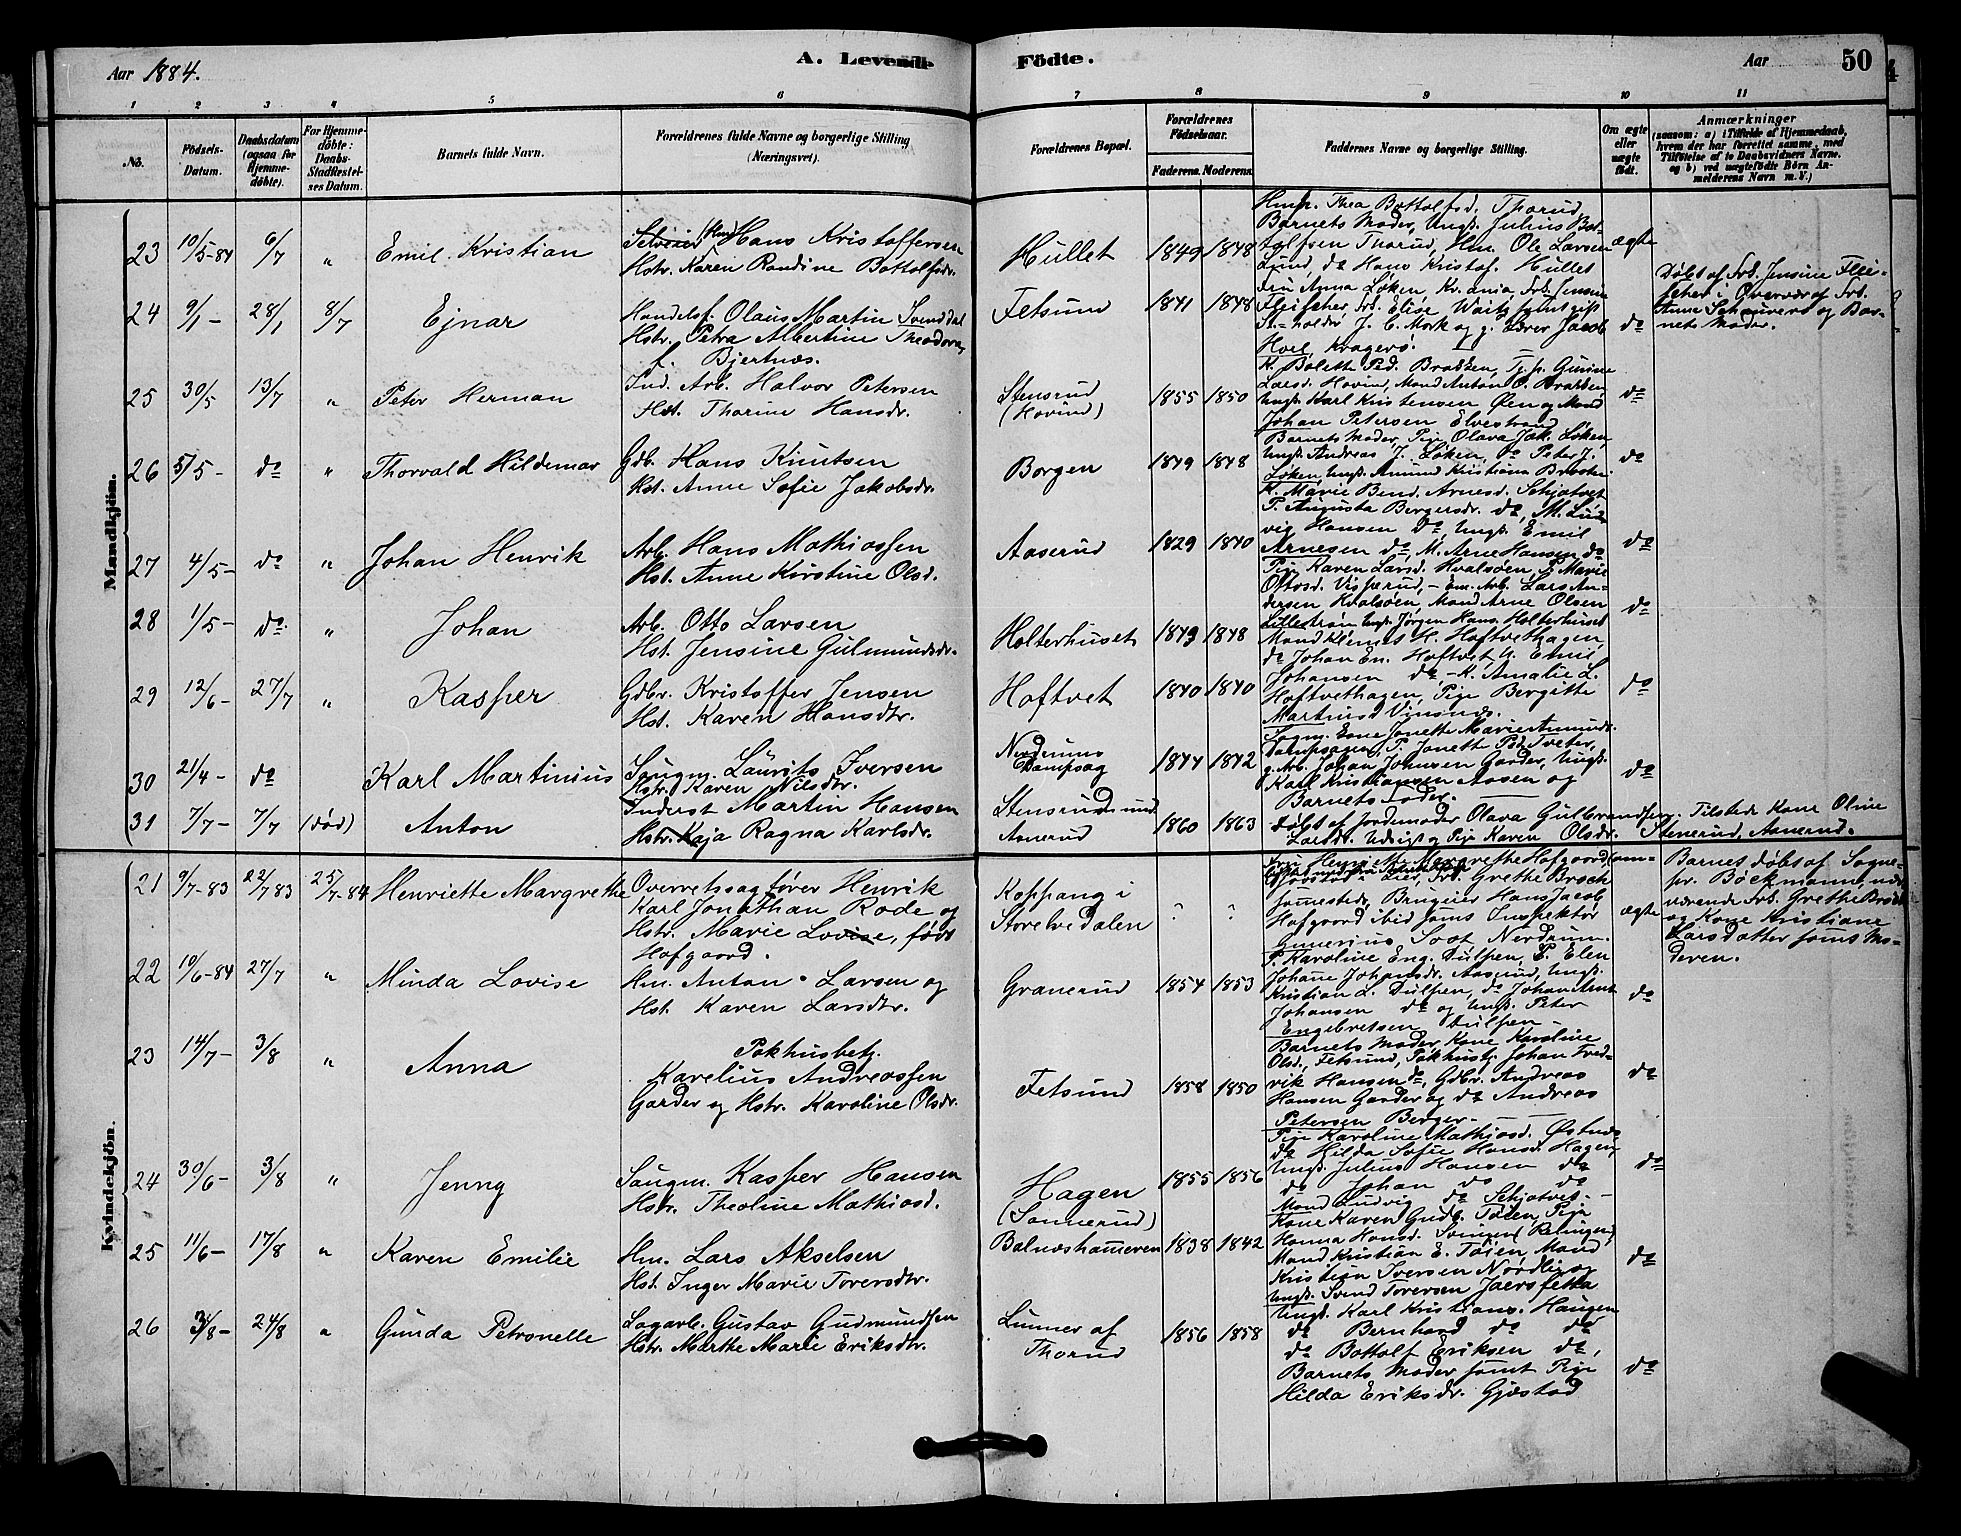 Aar 1884.
A. Levende Födte.
Aar
50
1 2 3 4 5 6 7 8 9 10 11
No.
Födsels-Datum.
Daabsdatum (ogsaa for Hjemme-döbte).
For Hjemme-döbte: Daabs-Stadfæstel-ses Datum.
Barnets fulde Navn.
Forældrenes fulde Navne og borgerlige Stilling (Næringsvei).
Forældrenes Bopæl.
Forældrenes Födselsaar.
Faderens. Moderens.
Faddernes Navne og borgerlige Stilling.
Om ægte eller uægte födt.
Anmærkninger
(saasom: a) i Tilfælde af Hjemmedaab, hvem der har forrettet samme, med Tilföielse af to Daabsvidners Navne, og b) ved uægtefödte Börn Anmelderens Navn m. V.)
Mandkjön.
23 10/5-84 6/7 " Emil Kristian
Hans Kristoffersen
Hstr. Karen Randine Bottolfsdr.
Hullet 1849 1848
Hmp. Thea Bottolfsd. Thorud,
Barnets Moder, Ungk. Julius Bot-
tolfsen Thorud, Hm. Ole Larsen
Lund, do Hans Kristof. Hullet
ægte
24 9/1 - 28/1 8/7 Ejnar
Handelsf. Olaus Martin Svenddal
Hstr. Petra Albertine Theodora,
f. Bjertnæs.
Fetsund 1841 1848
Fru Anna Løken, Kr.ania, Frk. Jensine
Fleischer, Frk. Elise
J. C. Mork og g. Lærer Jacob
Kragerø.
do
Døbt af Frk. Jensine Flei-
scher i Overvær af Frk.
Anne og Bar-
nets Moder.
25 30/5 13/7 " Peter Herman
Ind. Arb. Halvor Petersen
Hst. Thorine Hansdr.
Stensrud
(Hovind)
1855 1850
K. Bolette Ped. Brakken, Tjp. Gunine
Larsd. Hovin, Mand Anton O. Brakken,
Ungk. Karl Kristensen Øen og Mand
Johan Petersen Elvestrand
do
26 5/5 - do " Thorvald Hildemar
Gdb. Hans Knutsen
Hst. Anne Sofie Jakobsdr.
Borgen 1849 1848
Barnets Moder, Pige Olava Jak. Løken,
Ungk. Andreas J. Løken, do Peter J.
Løken, Ungk. Amund Kristians
do
27 4/5 - do " Johan Henrik
Arb. Hans Mathiassen
Hst. Anne Kirstine Olsd.
Aaserud 1829 1840
K. Marie Bend. Arnesd. Schjatvet
P. Augusta Bergersdr. do, M. Lud-
vig Hansen do, Ungk. Emil
Arnesen do, M. Arne Hansen do
do
28 1/5 - do " Johan
Arb. Otto Larsen
Hst. Jensine Gulmundsdr.
Holterhuset 1843 1848
Pige Karen Larsd. Hvalsøen, P. Marie
Ottosd. Visperud, Em. Arb. Lars An-
dersen Kvalsøen, Mand Arne Olsen
Lillestrøm Ungk. Jørgen Hans. Holterhuset
do
29 12/6 - 27/7 " Kasper
Gdbr. Kristoffer Jensen
Hst. Karen Hansdtr.
Hoftvet 1840 1840
Mand Klemet H. Hoftvethagen,
do Johan En. Hoftvet, U. Emil
Johansen do - K. Amalie L.
Hoftvethagen, Pige Bergitte
Martinusd. Vinsnæs.
do
30 21/4 - do Karl Martinius
Saugm. Laurits Iversen
Hstr. Karen Nilsdtr.
Nerdrums
Dampsag
1844 1842
Sagm. Ene Jonette Marie Amunds.
Dampsagen, P. Jonette Ped. Tveter,
g. Arb. Johan Johnsen Garder, Ungk.
Karl Kristiansen Aasen og
Barnets Fader.
do
31 7/7 - 7/7 (død) Anton
Inderst Martin Hansen
Hstr. Kaja Ragna Karlsdr.
Stensrud und.
Aanerud
1860 1863
Døbt af Jordemoder Olava Gulbrandsen. Tilstede Kone Oline
Larsdr. Udsigt og Pige Karen Olsdr. Stenerud, Aanerud.
Kvindekjön.
21 9/7-83 22/7 83 25/7-84 Henriette Margrethe
Overretssagfører Henrik
Karl Jonathan Rode og
Hstr. Marie Lovise, født
Hofgaard.
Koppang i
Storelvedalen
? ?
Fru Henriette Margrethe Hofgaard,
Frk. Grethe Broch
sammesteds, Brugeier Hans Jacob
Hofgaard ibid. samt Inspektør
Gunerius Soot, Nerdrum.
ægte
Barnet døbt af Sogne-
pr. Böckmann, nær-
værende Frk. Grethe Broch
og Kone Kristiane
Larsdatter samt Mo-
deren.
22 10/6-84 27/7 " Minda Lovise
Hm. Anton Larsen og
Hst. Karen Larsdtr.
Granerud 1854 1853
P. Karoline Eng. Dulpen, P. Elen
Johane Johansdr. Aasrud, Ungk.
Kristian L. Dulpen, do Johan Aunt
Johansen do og Ungk. Peter
Engebretsen Dulpen
do
23 14/7 - 3/8 " Anna
Pakhusbetj.
Karelius Andreassen
Garder og Hstr. Karoline Olsdr.
Fetsund 1858 1850
Barnets Moder, Kone Karoline
Olsd., Fetsund, Pakhusbj. Johan Fred-
rik Hansen do, Gdbr. Andreas
Hansen Garder og do Andreas
Petersen Berger.
do
24 30/6 - 3/8 " Jenny
Saugm. Kasper Hansen
Hstr. Theoline Mathiasd.
Hagen
(Sannerud)
1855 1856
Pige Karoline Mathiasd. Østnes
do Hilda Sofie Hansd. Hagen,
Ungk. Julius Hansen do
do Johan do do
Mand Ludvig do Schjatvet.
do
25 11/6 - 17/8 " Karen Emilie
Hm. Lars Akselsen
Hst. Inger Marie Toversdtr.
Balnæshameren 1838 1842
Kone Karen Gudb. Tøien, Pige
Hanna Hansd. Svingen, Relingen,
Mand Kristian E. Tøien, Mand
Kristian Iversen Nordli og
Ungk. Svend Toversen Jaersfetta
do
26 3/8 - 24/8 " Gunda Petronelle
Sagarb. Gustav Gudmundsen
Hstr. Marthe Marie Eriksdtr.
Lunner af
Thorud
1856 1858
Ungk. Karl Kristians. Haugen
do Bernhard do do
do Bottolf Eriksen do,
Barnets Moder samt Pige
Hilda Eriksdr. Gjæstad
do